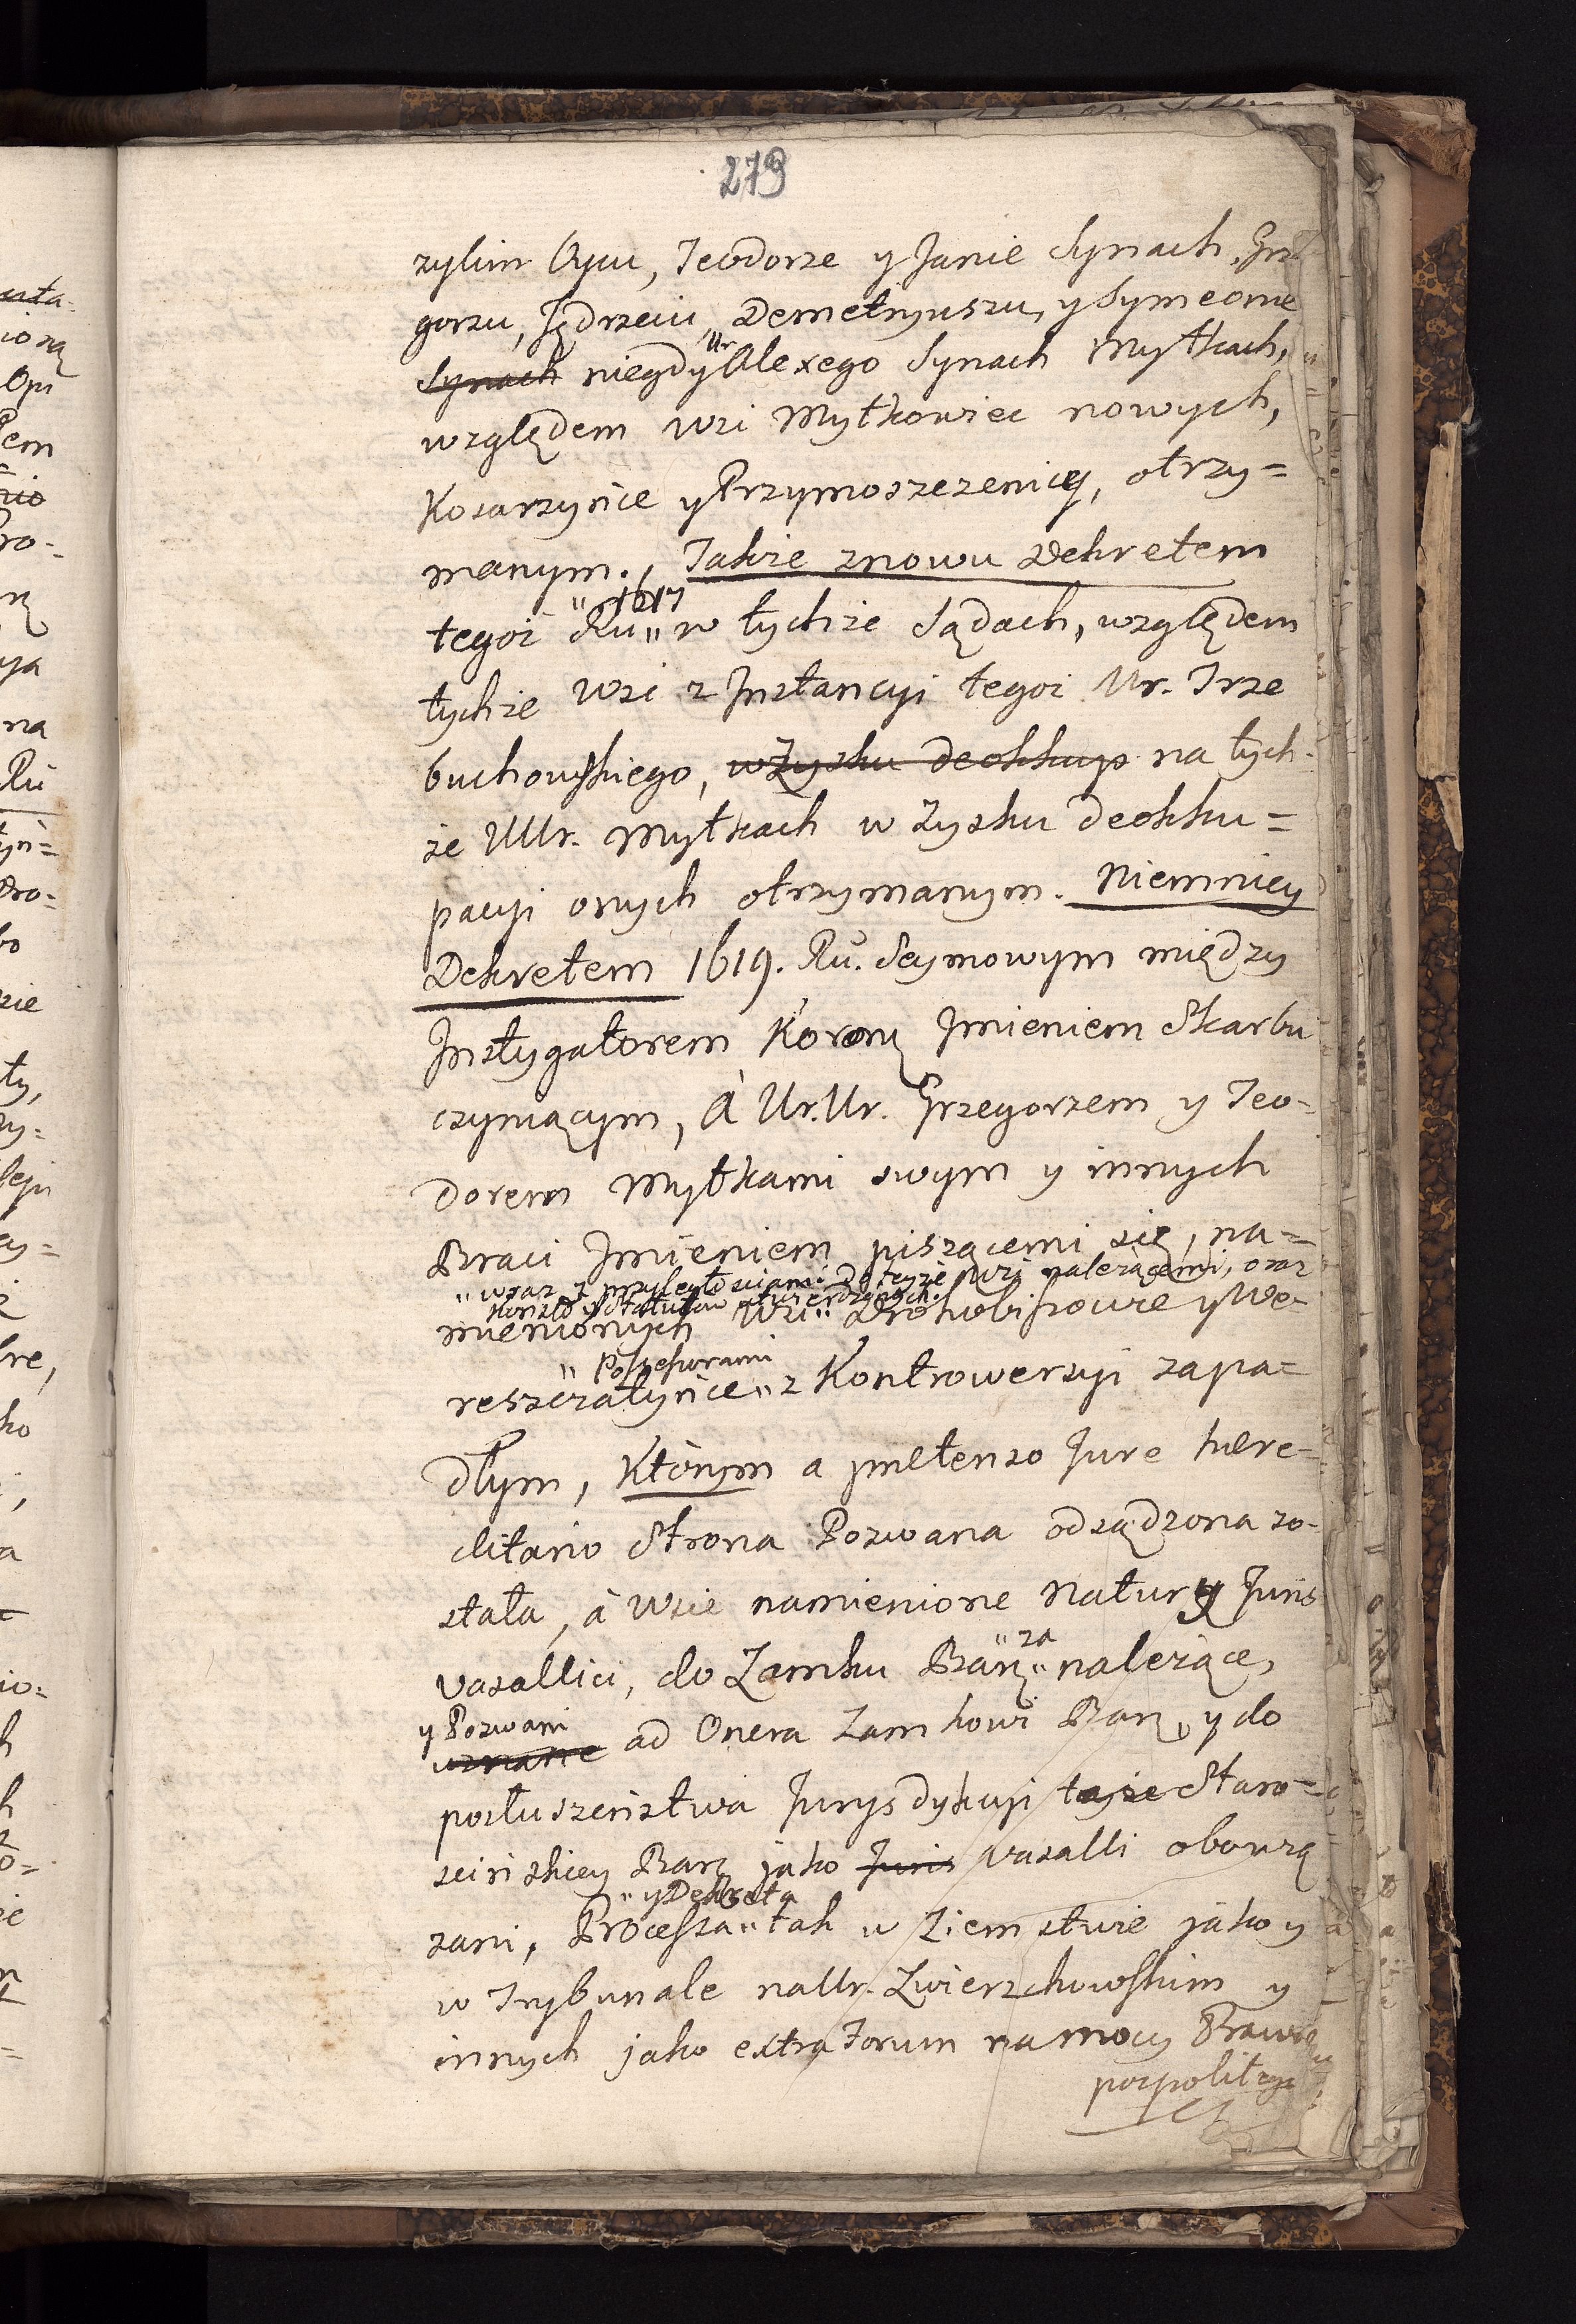 279
zylim Oycu, Teodorze y Janie Synach, Grz
gorzu, Jędrzeiu, Demetryuszu, y Symeonie
Synach niegdy Ur Alexego Synach Mytkach,
względem Wsi Mytkowiec nowych,
Kosarzyńce y Przymoszczenicy, otrzy=
manym., Takze znowu Dekretem
" 1617
tegoż Ru" w tychże Sądach, względem
tychże Wsi z Instancyi tegoż Ur. Trze
buchowskiego, w Zysku deokkup na tych-
że UUr. Mytkach w Zysku deokku=
pacyi onych otrzymanym. Niemniey
Dekretem 1619. Ru. Seymowym między
Instygatorem Koronę Imieniem Skarbu
czyniącym, à Ur. Ur. Grzegorzem y Teo-
dorem Mytkami swym y innych
Braci Imieniem piszącemi się, na=
" wraz z przyległosciami do teyże wsi należącemi, oraz
mienionych Wsi" Drohobiszowce y We-
" Posseszorami
reszczatyńce" z Kontrowersyi zapa=
dłym, Którym a prætenso Jure hære-
ditario Strona Pozwana odsądzona zo-
stała, à Wsie namienione Natury Juris
" za
Vasallici, do Zamku Barz" należące,
y Pozwani
uznane ad Onera Zamkowi Barz, y do
posłuszeństwa Jurysdykcyi teyże Staro=
scińskiey Barz jako Juris Vasalli obowzą
" y Dekreta
zani, Processa" tak w Ziemstwie jako y
w Trybunale na Ur. Zwierzchowskim y
innych jako extra Forum na mocy Prawa
pospolitego